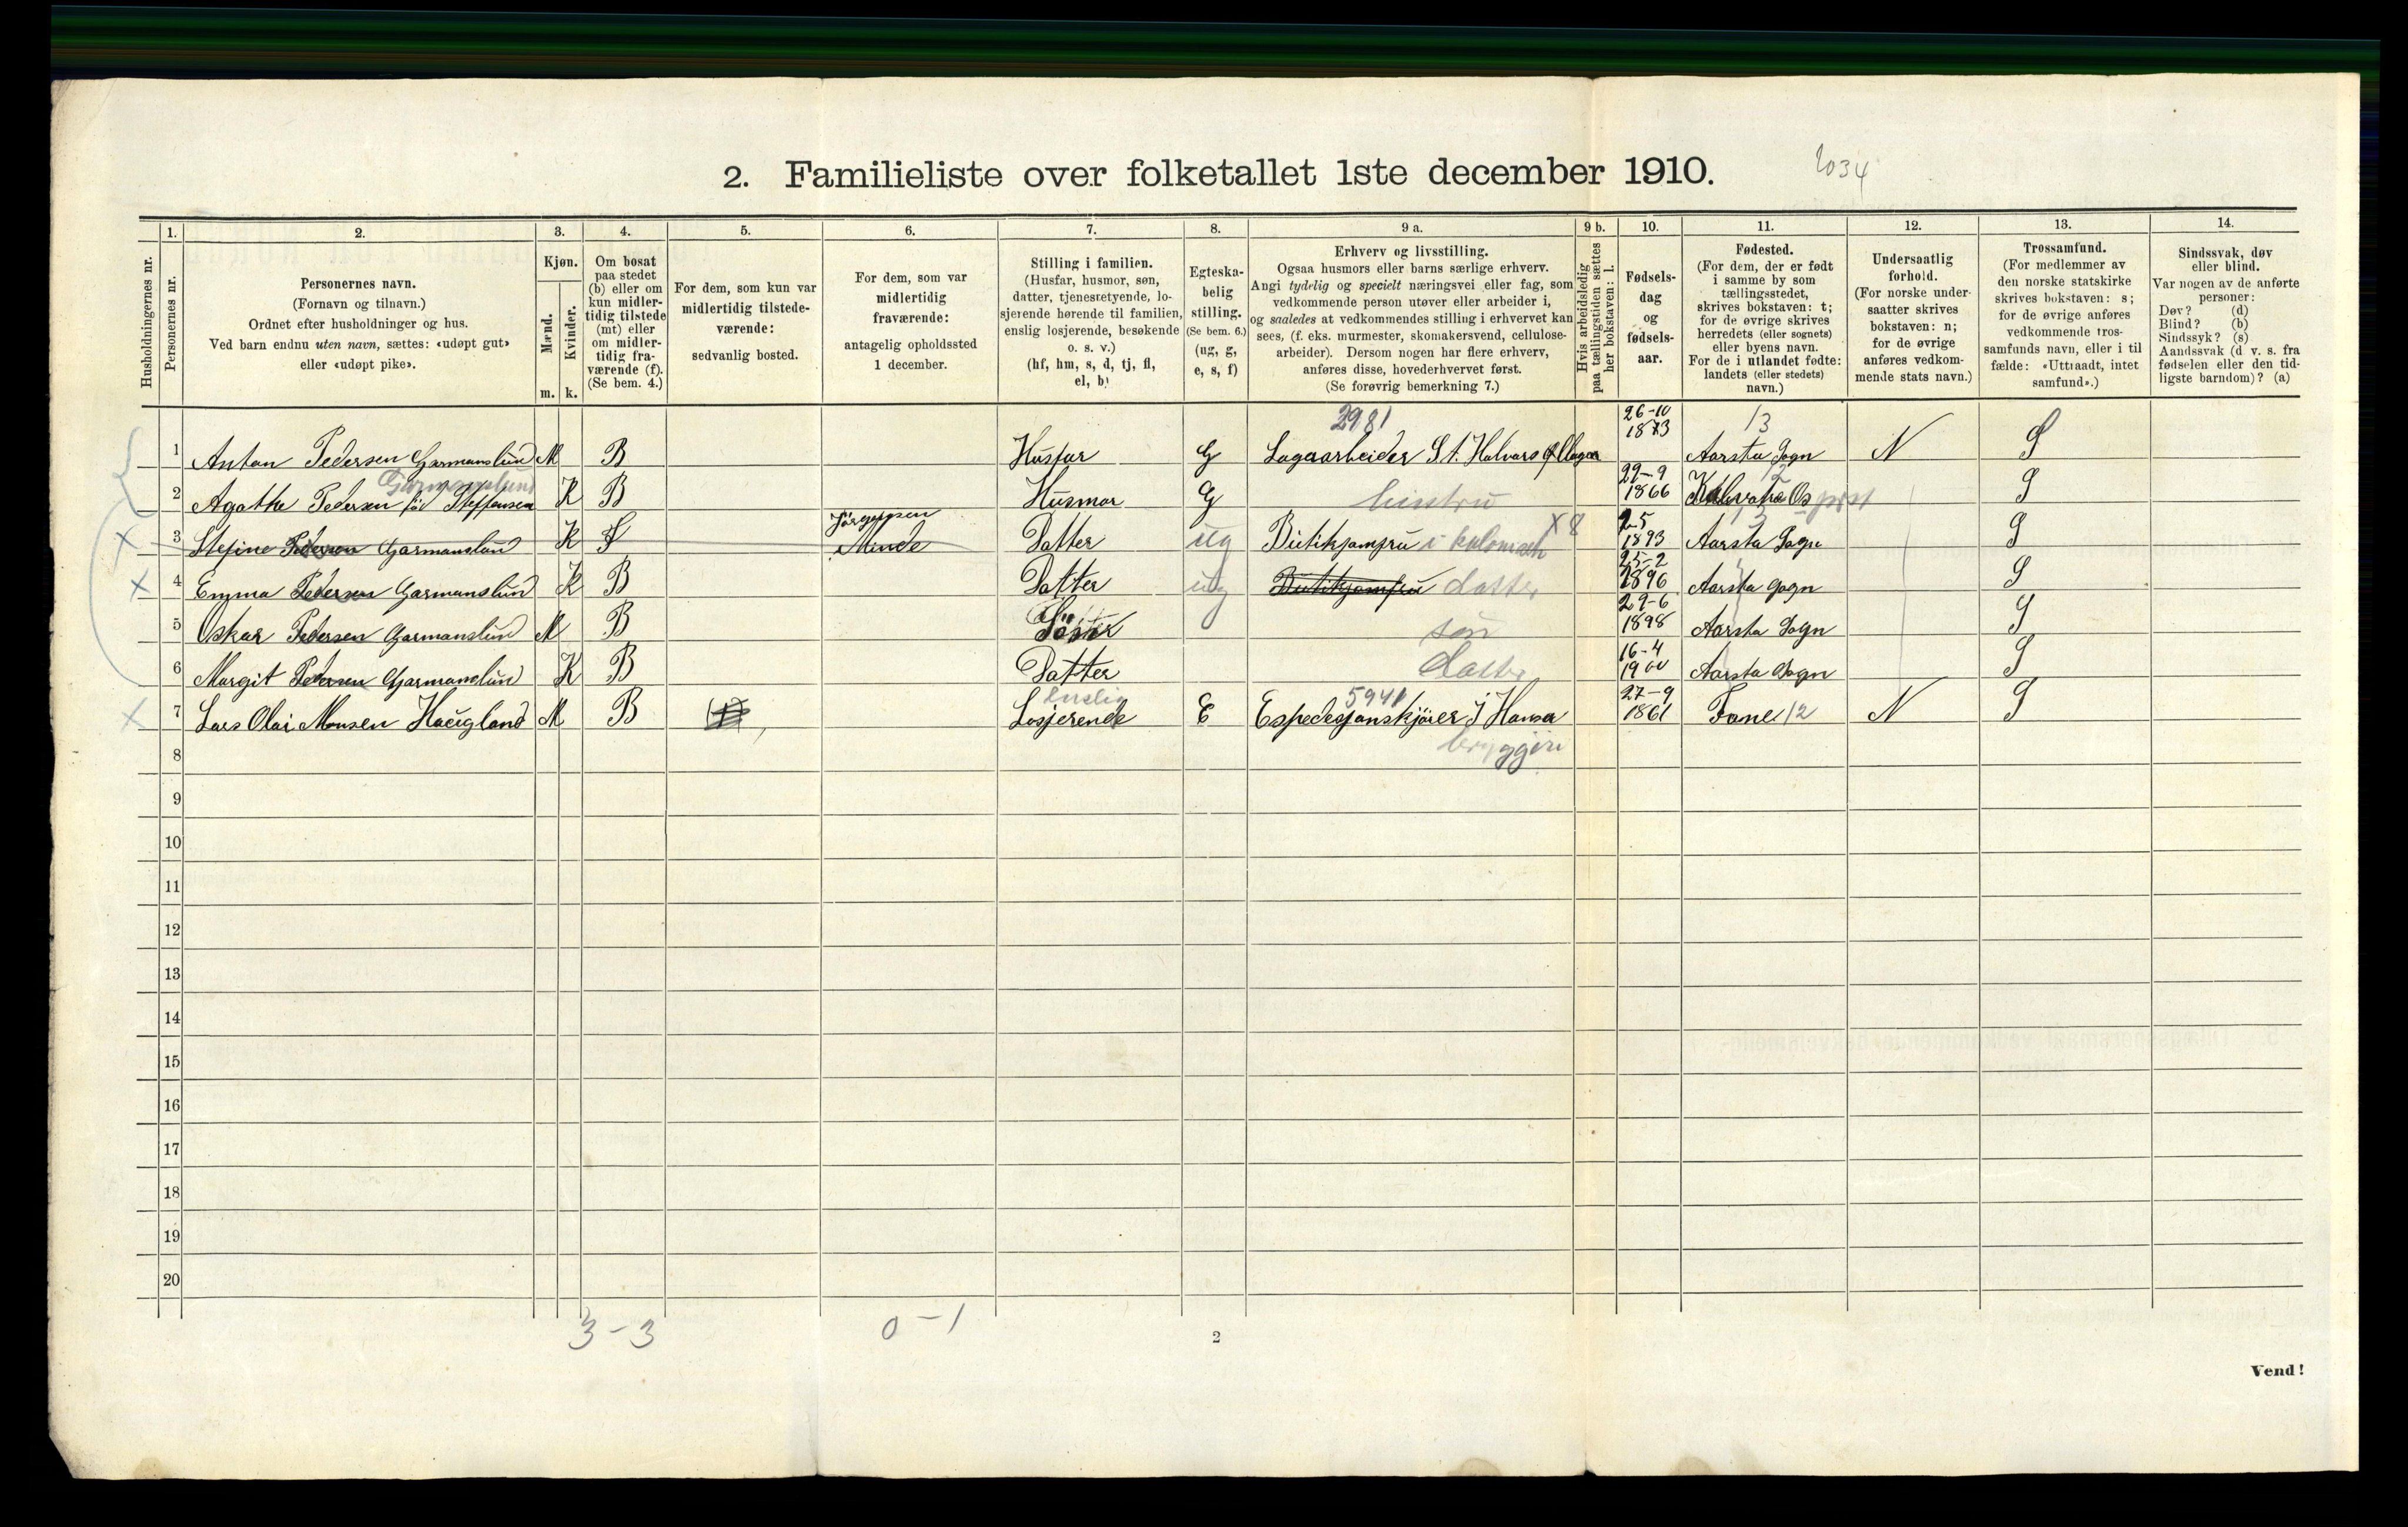 2. Familieliste over folketallet 1ste december 1910.
2034
Husholdningernes nr.
1.
Personernes nr.
2.
Personernes navn.
(Fornavn og tilnavn.)
Ordnet efter husholdninger og hus.
Ved barn endnu uten navn, sættes: «udøpt gut»
eller «udøpt pike».
3.
Kjøn.
Mænd.
Kvinder.
m. k.
4.
Om bosat
paa stedet
(b) eller om
kun midler-
tidig tilstede
(mt) eller
om midler-
tidig fra-
værende (f).
(Se bem. 4.)
5.
For dem, som kun var
midlertidig tilstede-
værende:
sedvanlig bosted.
6.
For dem, som var
midlertidig
fraværende:
antagelig opholdssted
1 december.
7.
Stilling i familien.
(Husfar, husmor, søn,
datter, tjenestetyende, lo-
sjerende hørende til familien,
enslig losjerende, besøkende
o. s. v.)
(hf, hm, s, d, tj, fl,
el, b)
8.
Egteska-
belig
stilling.
(Se bem. 6.)
(ug, g,
e, s, f)
9 a.
Erhverv og livsstilling.
Ogsaa husmors eller barns særlige erhverv.
Angi tydelig og specielt næringsvei eller fag, som
vedkommende person utøver eller arbeider i,
og saaledes at vedkommendes stilling i erhvervet kan
sees, (f. eks. murmester, skomakersvend, cellulose-
arbeider). Dersom nogen har flere erhverv,
anføres disse, hovederhvervet først.
(Se forøvrig bemerkning 7.)
9 b.
Hvis arbeidsledig
paa tællingstiden sættes
her bokstaven: l.
10.
Fødsels-
dag
og
fødsels-
aar.
11.
Fødested.
(For dem, der er født
i samme by som
tællingsstedet,
skrives bokstaven: t;
for de øvrige skrives
herredets (eller sognets)
eller byens navn.
For de i utlandet fødte:
landets (eller stedets)
navn.)
12.
Undersaatlig
forhold.
(For norske under-
saatter skrives
bokstaven: n;
for de øvrige
anføres vedkom-
mende stats navn.)
13.
Trossamfund.
(For medlemmer av
den norske statskirke
skrives bokstaven: s;
for de øvrige anføres
vedkommende tros-
samfunds navn, eller i til
fælde: «Uttraadt, intet
samfund».)
14.
Sindssvak, døv
eller blind.
Var nogen av de anførte
personer:
Døv? (d)
Blind? (b)
Sindssyk? (s)
Aandssvak (d v. s. fra
fødselen eller den tid-
ligste barndom)? (a)
2981 26-10 13
1 Anton Pedersen Garmanslund M B Husfar G Lagerarbeider St. Halvars Øllager 1873 Aarsta Sogn N S
Garmanslund 29-9 12
2 Agathe Pedersen fø Steffensen K B Husmor G hustru 1866 Os prst S
Jörgensen X8 2-5
X 3 Stefine Pedersen Garmanslund K F Minde Datter ug Butikjomfru i kolonialh 1893 Aarsta Sogn S
25-2
X 4 Emma Pedersen Garmanslund K B Datter ug Butikjomfru datter 1896 Aarsta Sogn S
29-6
5 Oskar Pedersen Garmanslund M B Sön sön 1898 Aarsta Sogn S
16-4
6 Margit Pedersen Garmanslund K B Datter datter 1900 Aarsta Sogn S
Enslig 5941 27-9
X 7 Lars Olai Monsen Haugland M B Losjerende E Espedesjonskjörer I Hansa 1861 Fane 12 N S
bryggeri
8
9
10
11
12
13
14
15
16
17
18
19
20
3-3 0-1
2
Vend!